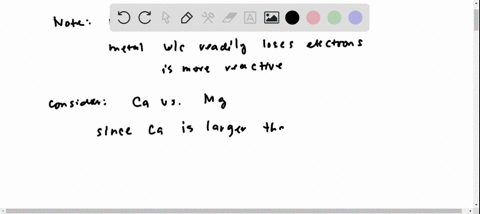 Note:
metal w/c readily loses electrons
is more reactive
Consider: Ca vs. Mg
since Ca is larger tha